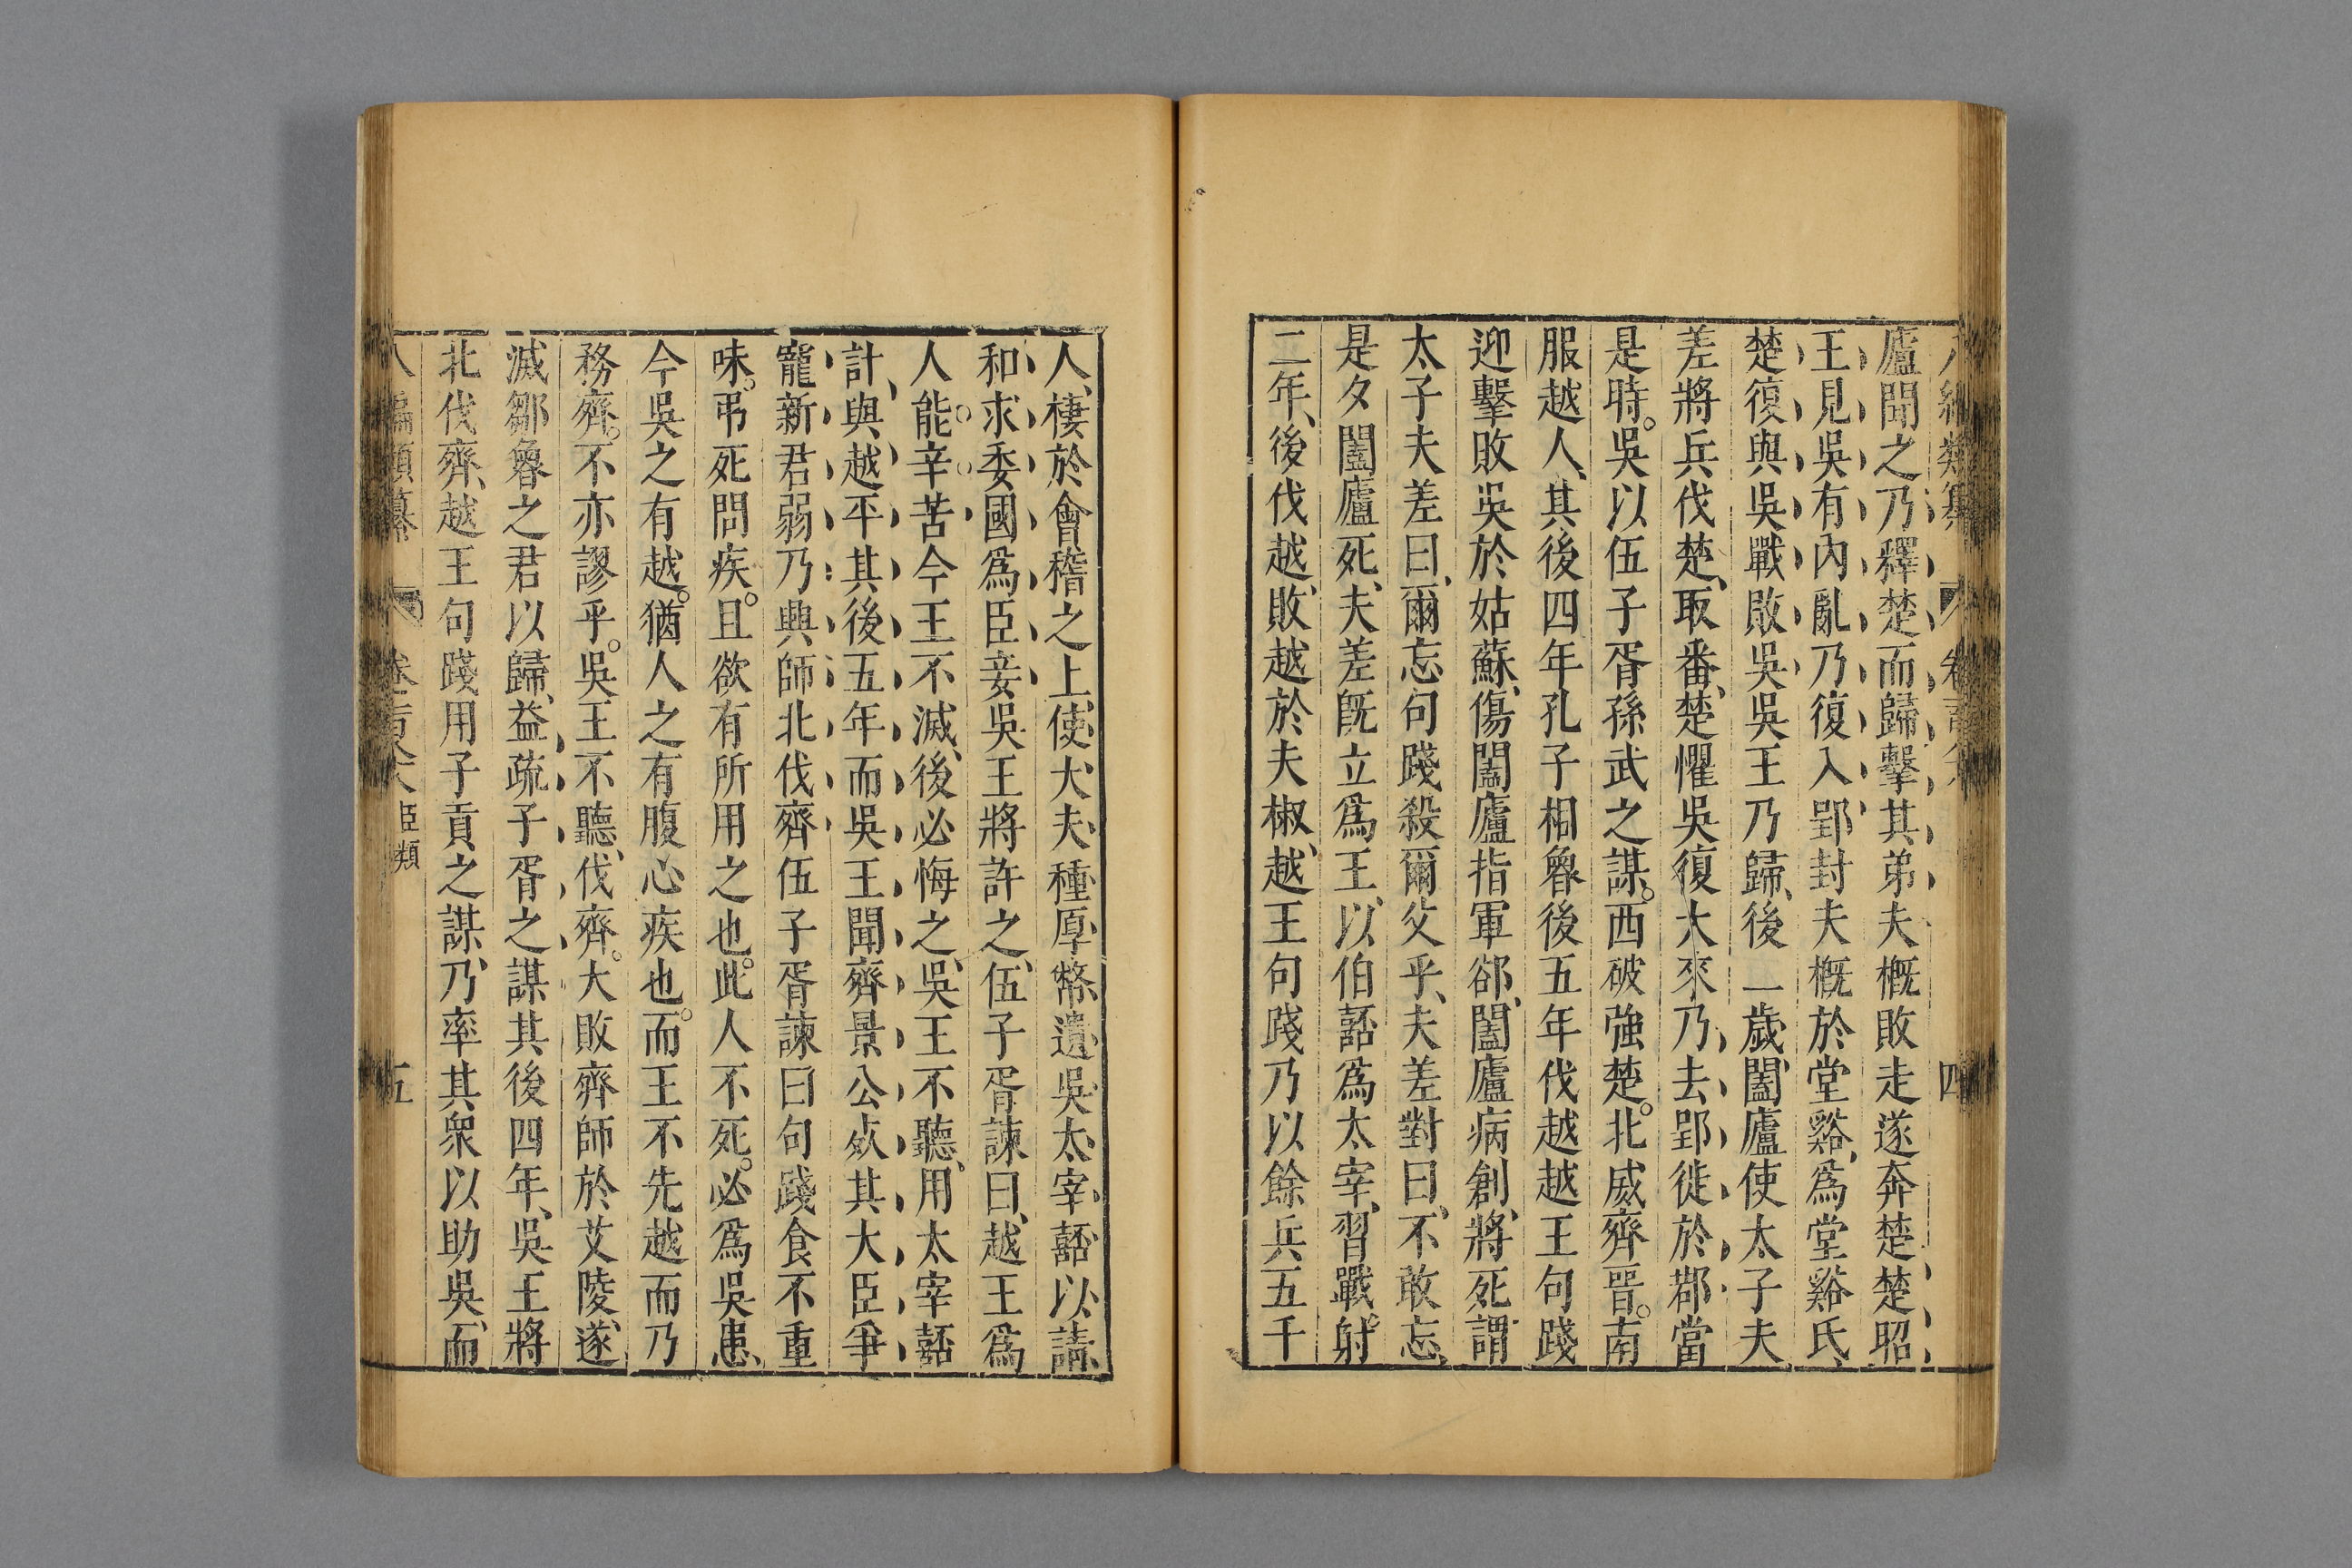 廬聞之乃釋楚而歸擊其弟夫概敗走遂奔楚楚昭
王見吳有內亂乃復入郢封夫概於堂谿爲堂谿氏
楚復與吳戰敗吳吳王乃歸後二歲闔廬使太子夫
差將兵伐楚取番楚懼吳復大來乃去郢徙於鄀當
是時吳以伍子胥孫武之謀西破強楚北威齊晉南
服越人其後四年孔子相魯後五年伐越越王句踐
迎擊敗吳於姑蘇傷闔廬指軍郤闔廬病創將死謂
太子夫差曰爾忘句踐殺爾父乎夫差對曰不敢忘
是夕闔廬死夫差旣立爲王以伯嚭爲太宰習戰射
二年後伐越敗越於夫椒越王句踐乃以餘兵五千
人棲於會稽之上使大夫種厚幣遺吳太宰嚭以請
和求委國爲臣妾吳王將許之伍子胥諫曰越王爲
人能辛苦今王不滅後必悔之吳王不聽用太宰嚭
計與越平其後五年而吳王聞齊景公死其大臣爭
寵新君弱乃興師北伐齊伍子胥諫曰句踐食不重
味弔死問疾且欲有所用之也此人不死必爲吳患
今吳之有越猶人之有腹心疾也而王不先越而乃
務齊不亦謬乎吳王不聽伐齊大敗齊師於艾陵遂
滅鄒魯之君以歸益疏子胥之謀其後四年吳王將
北伐齊越王句踐用子貢之謀乃率其衆以助吳而
八編類纂 臣類 五